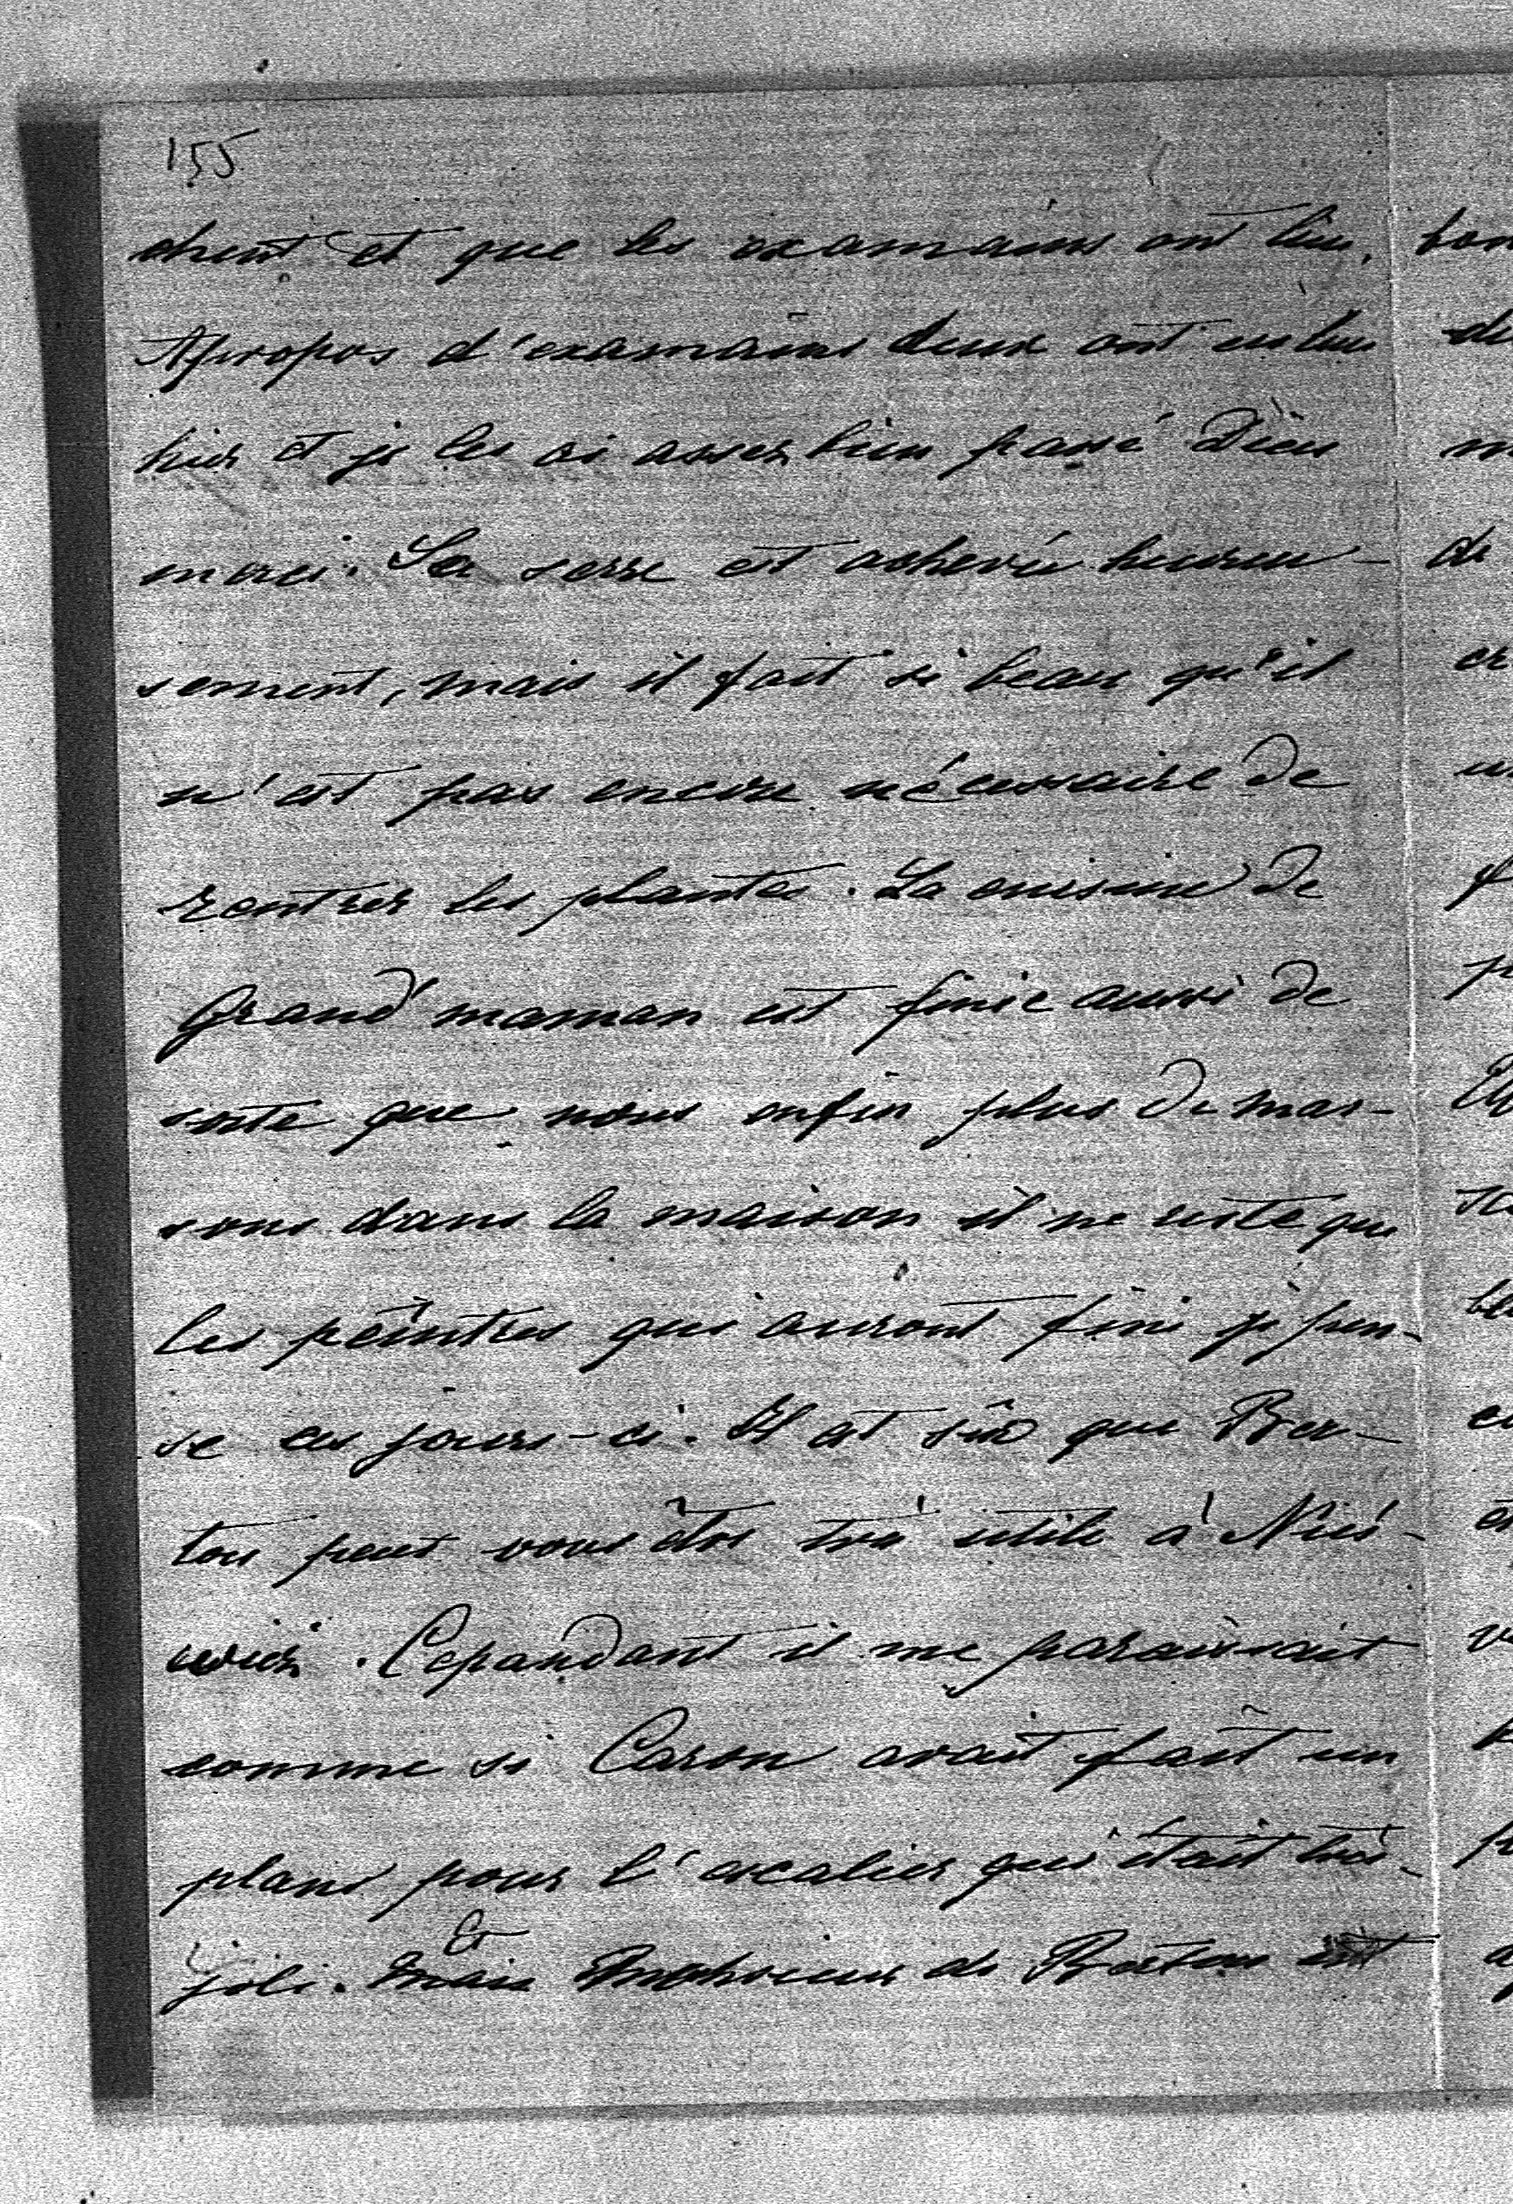 155
chent et que les examains ont lieu.
Apropos d'examains deux ont eu lieu
hier et je les ai asses bien passé Dieu
merci. La serre est achevée heureu-
sement, mais il fait si beau qu'il
n'est pas encore nécessaire de
rentrer les plantes. La cuisine de
Grand'maman est finie aussi de
sorte que nous enfin plus de mas-
sons dans la maison il ne reste que
les peintres qui auront fini je pen-
se ces jours-ci. Il est sûr que Ber-
ton peut vous être très utile à Nies-
wiez. Cepandant il me paraissait
comme si Caron avait fait un
plans pour l'escalier qui était très-
joli. Mais